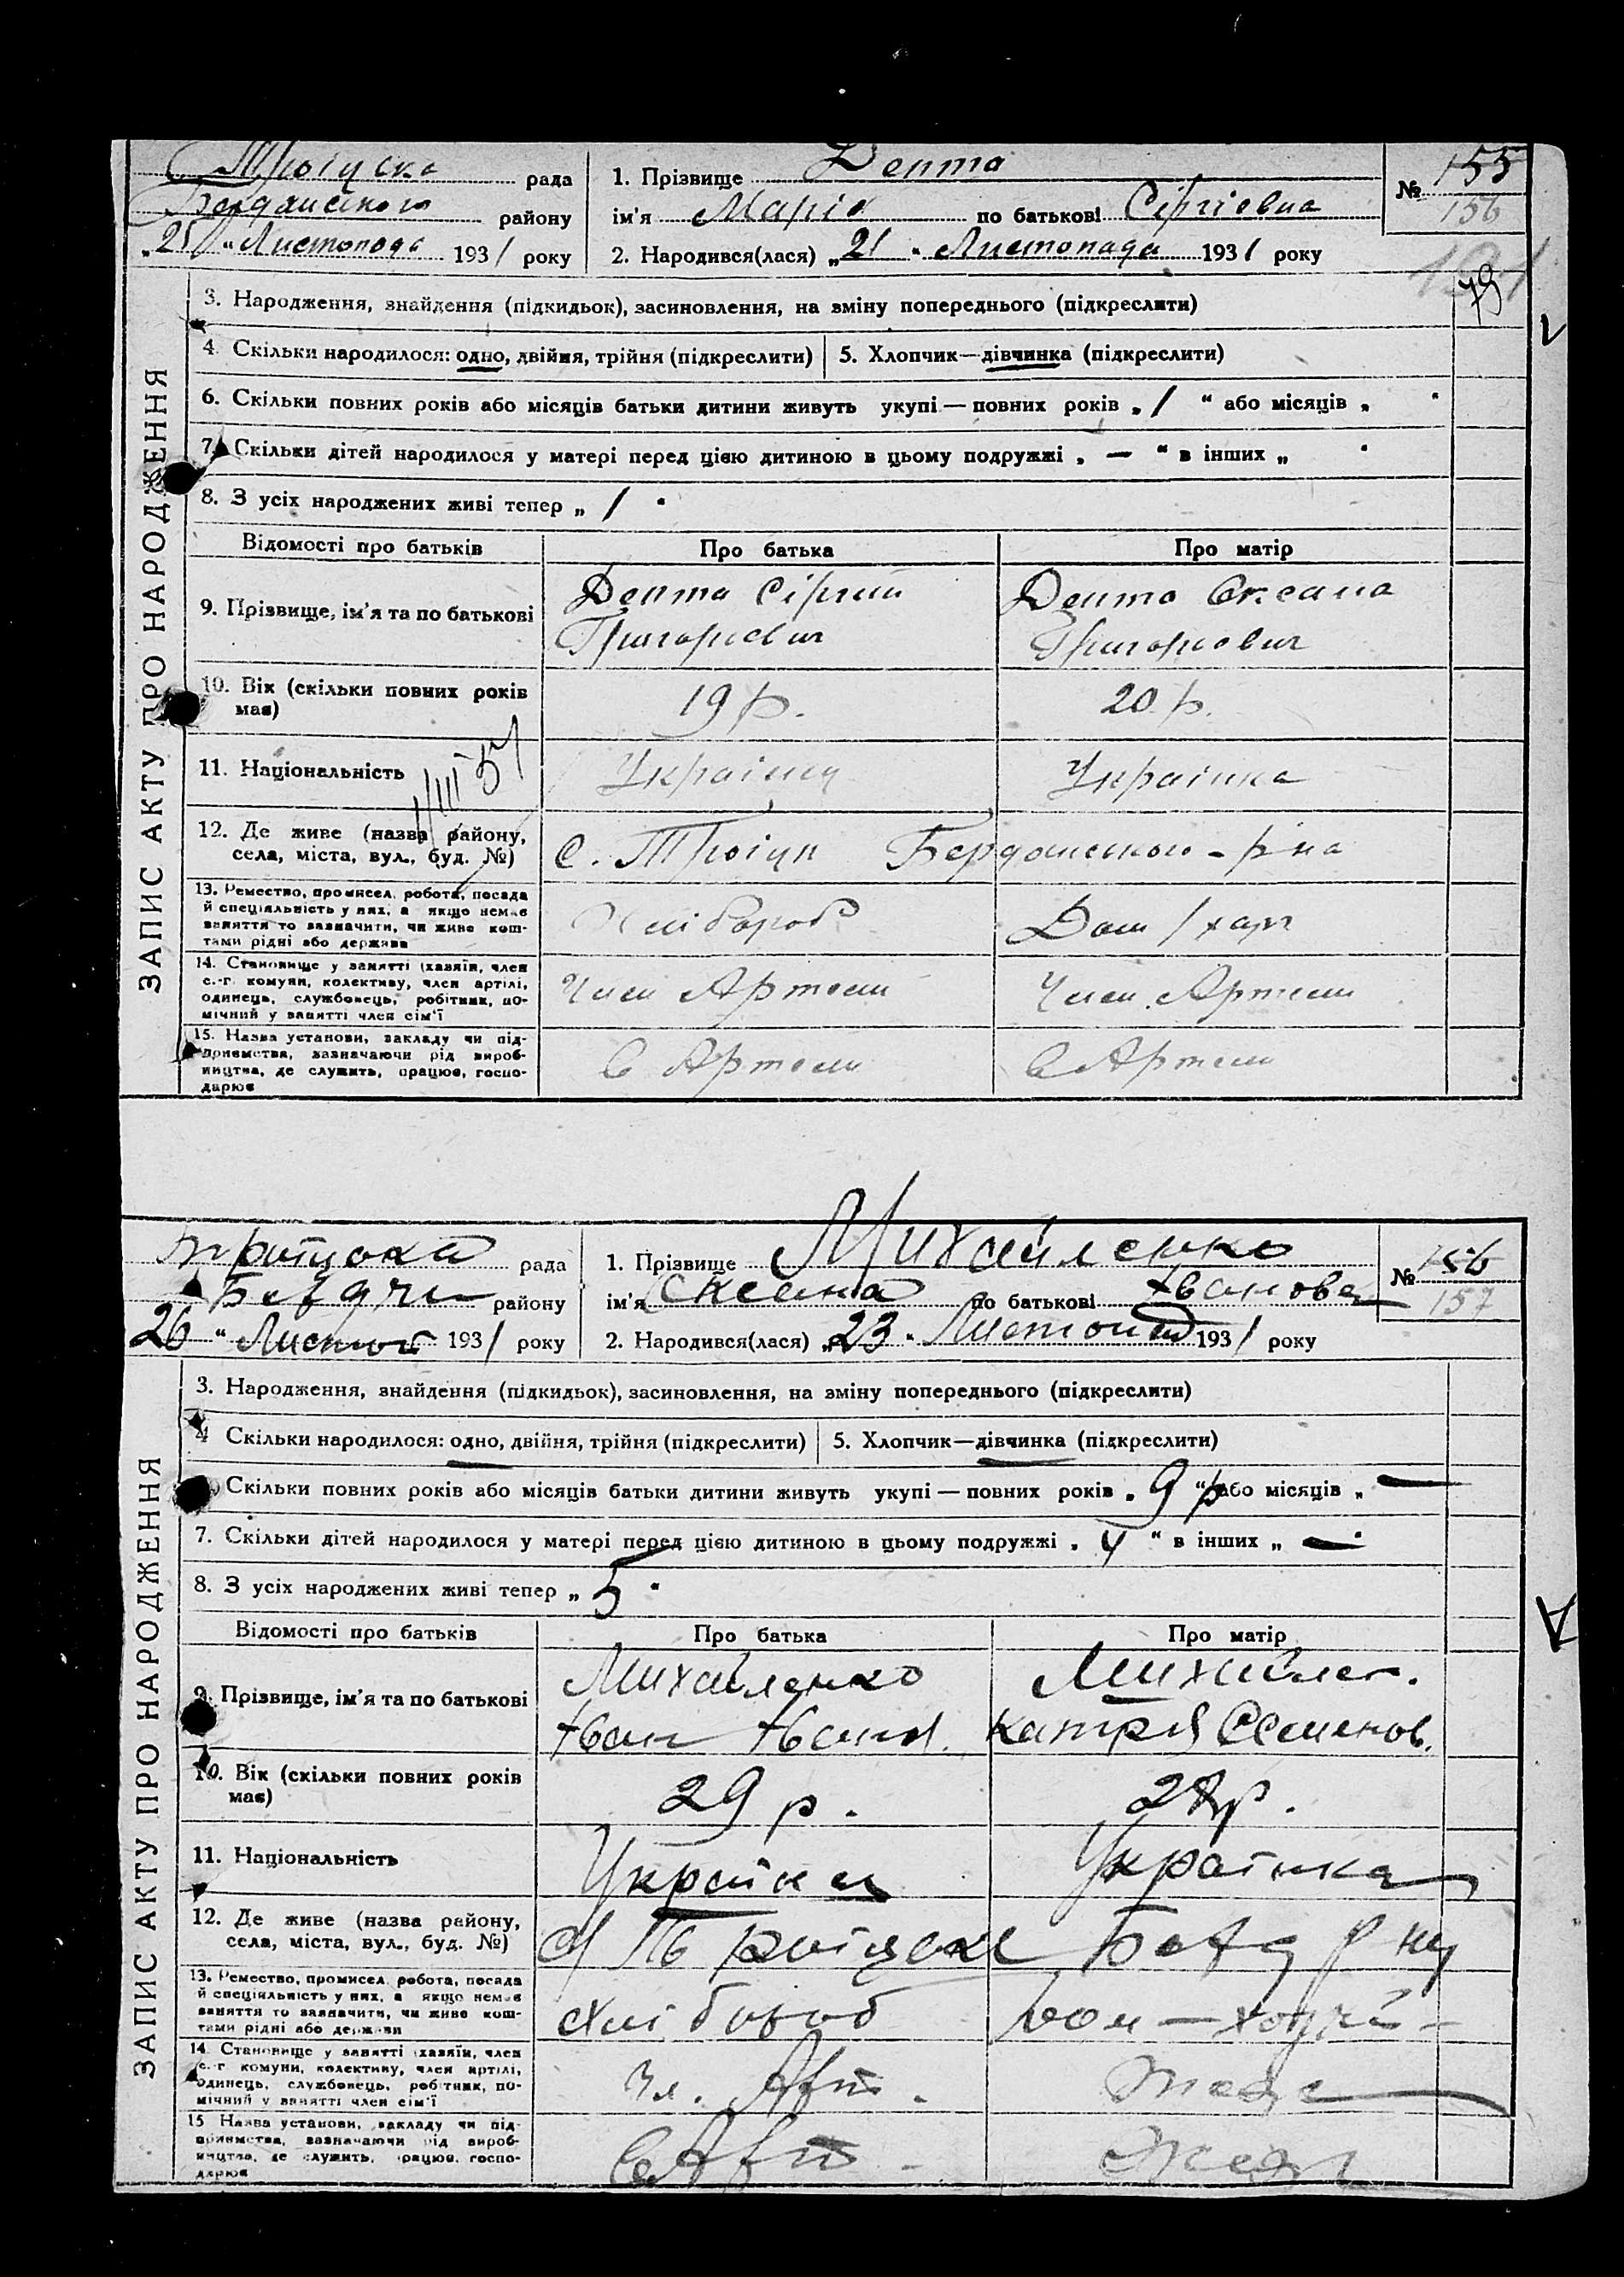 Троіцька рада
Бердянського району
„21 " Листопада 1931 року
1. Прізвище Депта
ім'я Марія по батькові Сергіевна
2. Народився(лася) „21 " Листопада 1931 року
№ 155
156
79
ЗАПИС АКТУ ПРО НАРОДЖЕННЯ
3. Народження, знайдення (підкидьок), засиновлення, на зміну попереднього (підкреслити)
4. Скільки народилося: одно, двійня, трійня (підкреслити) 5. Хлопчик—дівчинка (підкреслити)
6. Скільки повних років або місяців батьки дитини живуть укупі — повних років „ 1 " або місяців „ "
7. Скільки дітей народилося у матері перед цією дитиною в цьому подружжі „ — " в інших „ "
8. З усіх народжених живі тепер „ 1 "
Відомості про батьків Про батька Про матір
9. Прізвище, ім'я та по батькові
Депта Сіргий
Григориевич
Депта Оксана
Григориевич
10. Вік (скільки повних років
має)
19 р. 20 р.
11. Національність Українц Українка
12. Де живе (назва району,
села, міста, вул., буд. №)
с. Троіцк Бердянського р-на
13. Ремество, промисел, робота, посада
й спеціяльність у них, а якщо немає
заняття то зазначити, чи живе кош-
тами рідні або держави
Хлібороб Дом/хазя
14. Становище у занятті (хазяїн, член
с.-г. комуни, колективу, член артілі,
одинець, службовець, робітник, по-
мічний у занятті член сім'ї
Член Артели Член Артели
15. Назва установи, закладу чи під-
приємства, зазначаючи рід вироб-
ництва, де служить, працює, госпо-
дарює
В Артели В Артели
рада
району
26 " Листоп 1931 року
1. Прізвище Михайленко
ім'я Оксана по батькові Ивановна
2. Народився(лася) „23 " Листопад 1931 року
№ 156
157
ЗАПИС АКТУ ПРО НАРОДЖЕННЯ
3. Народження, знайдення (підкидьок), засиновлення, на зміну попереднього (підкреслити)
4 Скільки народилося: одно, двійня, трійня (підкреслити) 5. Хлопчик—дівчинка (підкреслити)
Скільки повних років або місяців батьки дитини живуть укупі — повних років „ 9 р " або місяців „ —
7. Скільки дітей народилося у матері перед цією дитиною в цьому подружжі „ 4 " в інших „ — "
8. З усіх народжених живі тепер „ 5 "
Відомості про батьків Про батька Про матір
9. Прізвище, ім'я та по батькові
Михайленко
Иван Иванов.
Михайлен.
Катря Семенов.
10. Вік (скільки повних років
має)
29 р.
11. Національність Українец Українка
12. Де живе (назва району,
села, міста, вул., буд. №)
13. Ремество, промисел, робота, посада
й спеціяльність у них, а якщо немає
заняття то зазначити, чи живе кош-
тами рідні або держави
Хлібороб
14. Становище у занятті (хазяїн, член
с.-г. комуни, колективу, член артілі,
одинець, службовець, робітник, по-
мічний у занятті член сім'ї
15 Назва установи, закладу чи під-
приємства, зазначаючи рід вироб-
ництва, де служить, працює, госпо-
дарює